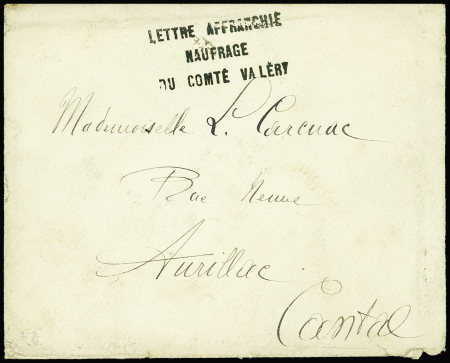 LETTRE AFFRANCHIE
NAUFRAGE
DU COMTÉ VALÉRY
Mademoiselle L. Carcuac
Rue Neuve
Aurillac.
Cantal